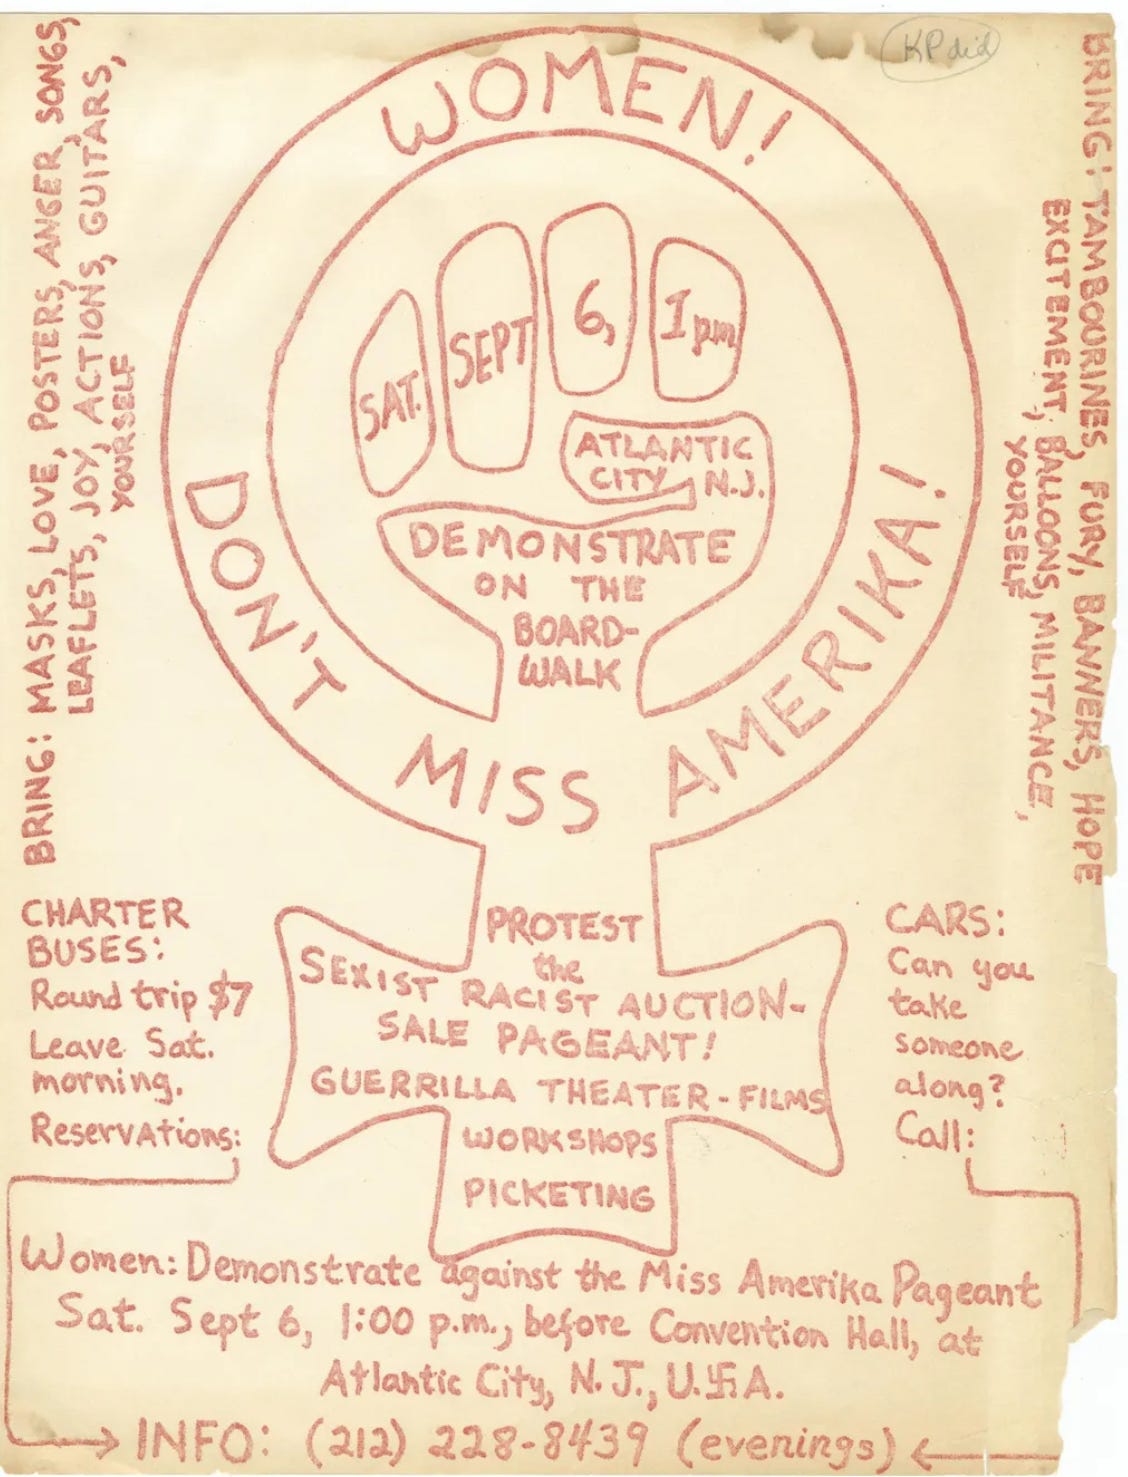 KP did
WOMEN!
DON'T MISS AMERIKA!
SAT.
SEPT
6,
1pm
ATLANTIC
CITY, N.J.
DEMONSTRATE
ON THE
BOARD-
WALK
BRING: MASKS, LOVE, POSTERS, ANGER, SONGS,
LEAFLETS, JOY, ACTIONS, GUITARS,
YOURSELF
BRING: TAMBOURINES, FURY, BANNERS, HOPE
EXCITEMENT, BALLOONS, MILITANCE,
YOURSELF
CHARTER
BUSES:
Round trip $7
Leave Sat.
morning.
Reservations:
PROTEST
the
SEXIST RACIST AUCTION-
SALE PAGEANT!
GUERRILLA THEATER-FILMS
WORKSHOPS
PICKETING
CARS:
Can you
take
someone
along?
Call:
Women: Demonstrate against the Miss Amerika Pageant
Sat. Sept 6, 1:00 p.m., before Convention Hall, at
Atlantic City, N.J., U.卐.A.
INFO: (212) 228-8439 (evenings)